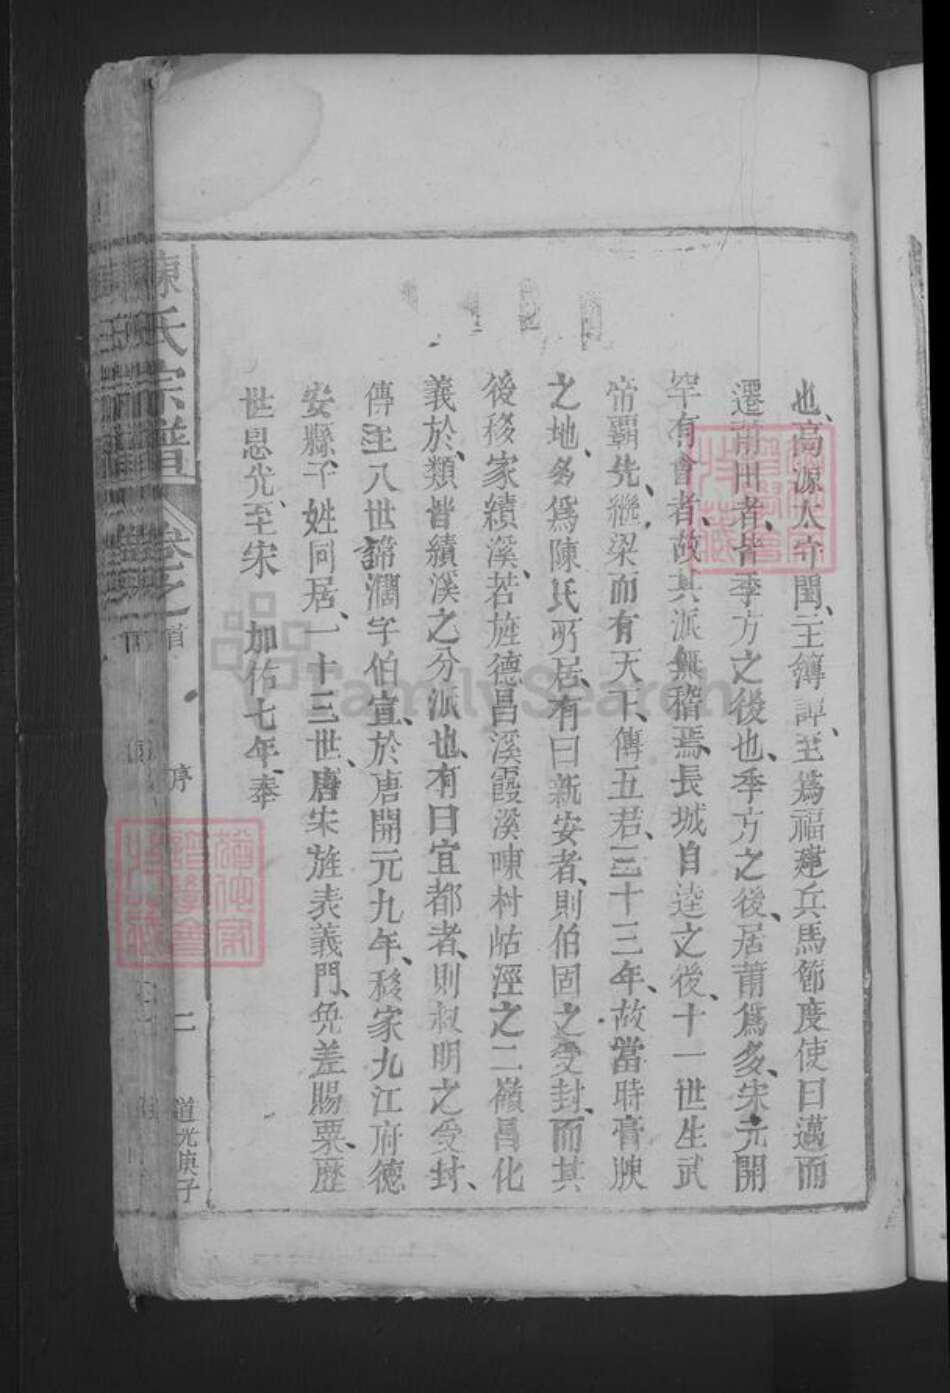 也、高源太守閩、主簿譚至、爲福建兵馬節度使曰邁而
遷莆田者、皆季方之後也、季方之後、居莆爲多、宋元開
罕有會者、故其派無稽焉、長城自逵之後、十一世生武
帝霸先、繼梁而有天下、傳五君、三十三年、故當時膏腴
之地、多爲陳氏所居、有曰新安者、則伯固之受封、而其
後移家績溪、若旌德昌溪霞溪暕村岵涇之二嶺昌化
義於、類皆績溪之分派也、有曰宜都者、則叔明之受封、
傳至八世諱濶字伯宣、於唐開元九年、移家九江府德
安縣、千姓同居、一十三世、唐宋旌表義門、免差賜粟、歷
世恩光、至宋 加佑七年、奉
陳氏宗譜 卷之首 序 二 道光庚子
FamilySearch